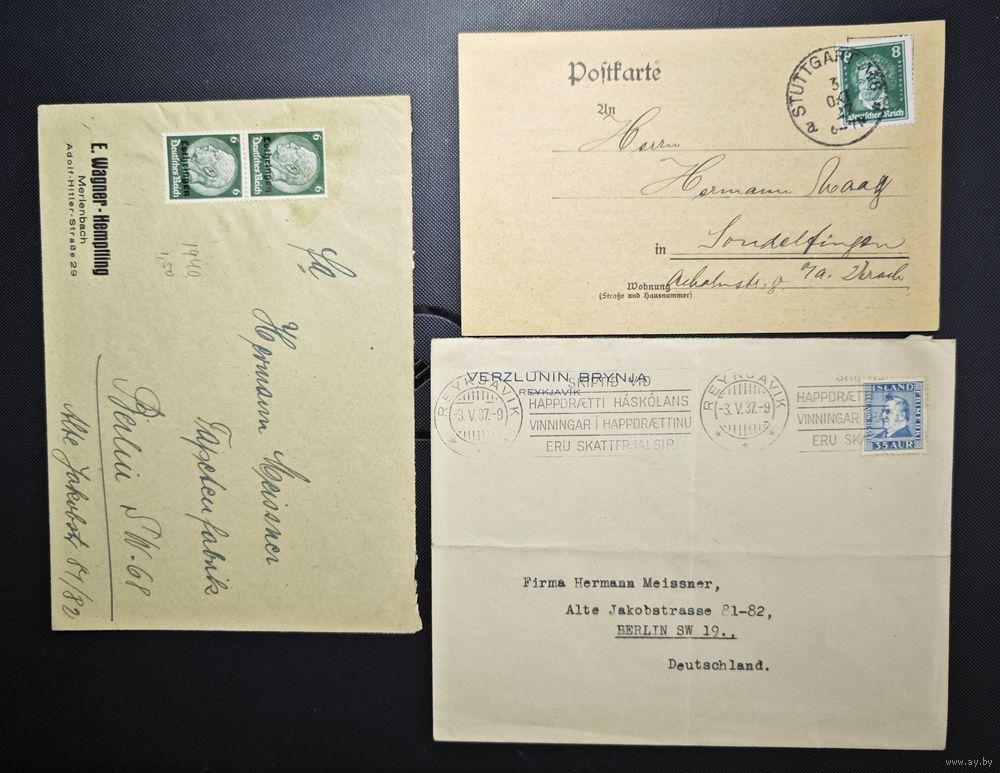 E. Wagner-Hempfling
Merlenbach
Adolf-Hitler-Straße 29
6 6
Deutsches Reich Deutsches Reich
Lothringen Lothringen
1940
1,50
Fa
Hermann Meissner
Tapetenfabrik
Berlin S.W. 68
Alte Jakobstr 81/82
Postkarte
An
Herrn
Hermann Maag
in Sondelfingen
Wohnung
(Straße und Hausnummer)
Achalmstr. 8
STUTTGART
3
8
Deutsches Reich
VERZLUNIN BRYNJA
REYKJAVÍK
REYKJAVIK
-3.V.37.-9
SKIPTIÐ VIÐ
HAPPDRÆTTI HÁSKÓLANS
VINNINGAR Í HAPPDRÆTTINU
ERU SKATTFRJÁLSIR
REYKJAVIK
-3.V.37.-9
HAPPDRÆT
VINNINGAR Í HA
ERU SKA
ISLAND
35 AUR
Firma Hermann Meissner,
Alte Jakobstrasse 81-82,
BERLIN SW 19.,
Deutschland.
www.ay.by